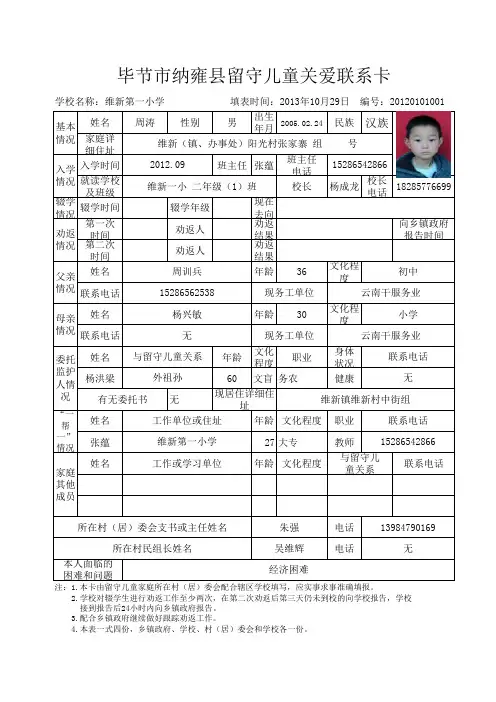 毕节市纳雍县留守儿童关爱联系卡
学校名称：维新第一小学 填表时间：2013年10月29日 编号：20120101001
基本情况 姓名 周涛 性别 男 出生年月 2005.02.24 民族 汉族
家庭详细住址 维新（镇、办事处）阳光村张家寨 组 号
入学情况 入学时间 2012.09 班主任 张蕴 班主任电话 15286542866
就读学校及班级 维新一小 二年级（1）班 校长 杨成龙 校长电话 18285776699
辍学情况 辍学时间 辍学年级 现在去向
劝返情况 第一次时间 劝返人 劝返结果 向乡镇政府报告时间
第二次时间 劝返人 劝返结果
父亲情况 姓名 周训兵 年龄 36 文化程度 初中
联系电话 15286562538 现务工单位 云南干服务业
母亲情况 姓名 杨兴敏 年龄 30 文化程度 小学
联系电话 无 现务工单位 云南干服务业
委托监护人情况 姓名 与留守儿童关系 年龄 文化程度 职业 身体状况 联系电话
杨洪梁 外祖孙 60 文盲 务农 健康 无
有无委托书 无 现居住详细住址 维新镇维新村中街组
“一帮一”情况 姓名 工作单位或住址 年龄 文化程度 职业 联系电话
张蕴 维新第一小学 27 大专 教师 15286542866
家庭其他成员 姓名 工作或学习单位 年龄 文化程度 与留守儿童关系 联系电话
所在村（居）委会支书或主任姓名 朱强 电话 13984790169
所在村民组长姓名 吴维辉 电话 无
本人面临的困难和问题 经济困难
注：1.本卡由留守儿童家庭所在村（居）委会配合辖区学校填写，应实事求事准确填报。
2.学校对辍学生进行劝返工作至少两次，在第二次劝返后第三天仍未到校的向学校报告，学校
接到报告后24小时内向乡镇政府报告。
3.配合乡镇政府继续做好跟踪劝返工作。
4.本表一式四份，乡镇政府、学校、村（居）委会和学校各一份。